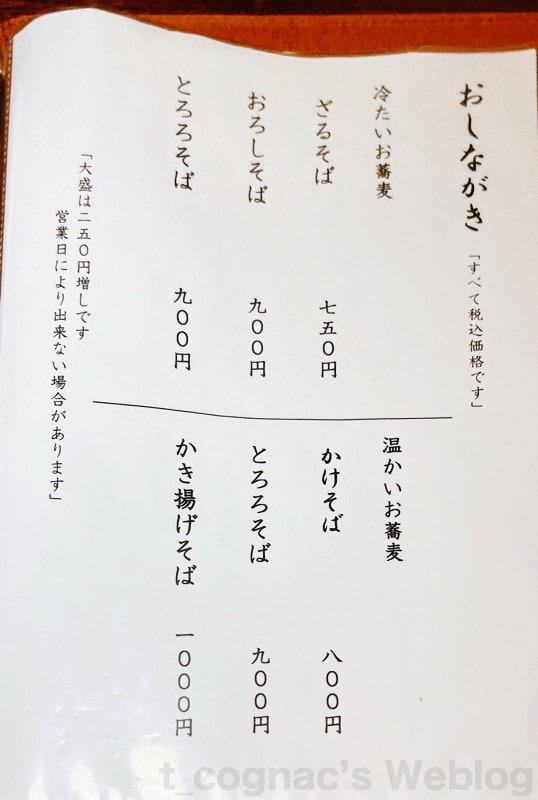 おしながき
「すべて税込価格です」
冷たいお蕎麦
ざるそば 七五〇円
おろしそば 九〇〇円
とろろそば 九〇〇円
温かいお蕎麦
かけそば 八〇〇円
とろろそば 九〇〇円
かき揚げそば 一〇〇〇円
「大盛は二五〇円増しです
営業日により出来ない場合があります」
t_cognac's Weblog